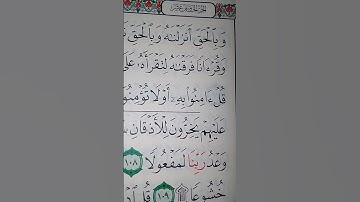 وَبِٱلْحَقِّ أَنزَلْنَٰهُ وَبِٱلْحَقِّ
وَقُرْءَانًا فَرَقْنَٰهُ لِتَقْرَأَهُۥ عَلَى
قُلْ ءَامِنُوا۟ بِهِۦٓ أَوْ لَا تُؤْمِنُوٓا۟
عَلَيْهِمْ يَخِرُّونَ لِلْأَذْقَانِ
وَعْدُ رَبِّنَا لَمَفْعُولًا ١٠٨
خُشُوعًا ۩ ١٠٩ قُلِ